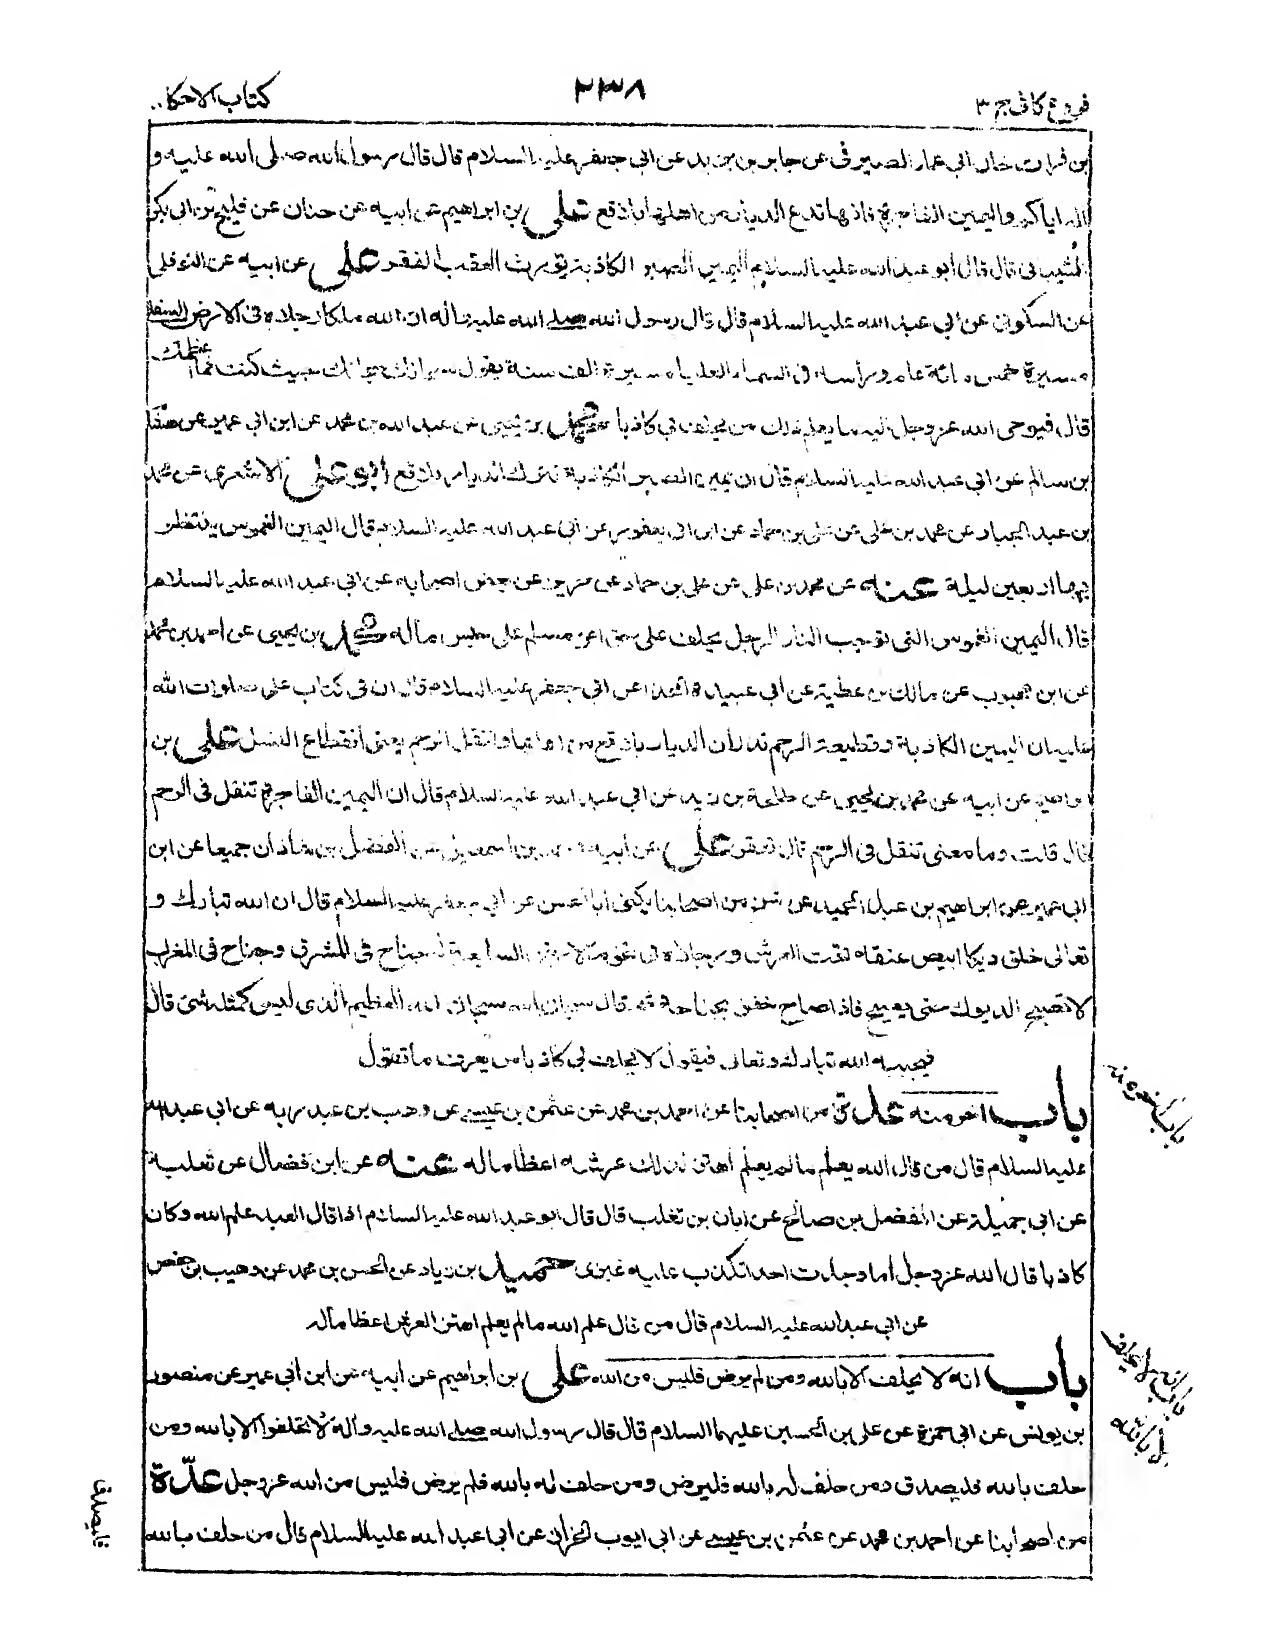 فروع كافى ج ٣
٢٣٨
كتاب الاحكا..
بن فرات خال ابى عمار الصيرفى عن جابر بن يزيد عن ابى جعفر عليه السلام قال قال رسول الله صلى الله عليه و
اله اياكم واليمين الفاجرة فانها تدع الديار من اهلها بلاقع على بن ابراهيم عن ابيه عن حنان عن فليح بن ابى بكر
الشيبانى قال قال ابو عبد الله عليه السلام اليمين الصبر الكاذبة تورث العقب الفقر على عن ابيه عن النوفلى
عن السكونى عن ابى عبد الله عليه السلام قال قال رسول الله صلى الله عليه واله ان لله ملكا رجلاه فى الارض السفلى
مسيرة خمس مائة عام وراسه فى السماء العليا مسيرة الف سنة يقول سبحانك سبحانك حيث كنت فما اعظمك
قال فيوحى الله عز وجل اليه ما يعلم ذلك من يحلف بى كاذبا محمد بن يحيى عن عبد الله بن محمد عن ابن ابى عمير عن هشام
بن سالم عن ابى عبد الله عليه السلام قال ان يمين الصبر الكاذبة تترك الديار بلاقع ابو على الاشعرى عن محمد
بن عبد الجبار عن محمد بن على عن على بن حماد عن ابن ابى يعفور عن ابى عبد الله عليه السلام قال اليمين الغموس ينتظر
بها اربعين ليلة عنه عن محمد بن على عن على بن حماد عن حريز عن بعض اصحابه عن ابى عبد الله عليه السلام
قال اليمين الغموس التى توجب النار الرجل يحلف على حق امرء مسلم على حبس ماله محمد بن يحيى عن احمد بن محمد
عن ابن محبوب عن مالك بن عطية عن ابى عبيدة الحذاء عن ابى جعفر عليه السلام قال ان فى كتاب على صلوات الله
عليه ان اليمين الكاذبة وقطيعة الرحم تذران الديار بلاقع من اهلها وتنقل الرحم يعنى انقطاع النسل على بن
ابراهيم عن ابيه عن محمد بن يحيى عن طلحة بن زيد عن ابى عبد الله عليه السلام قال ان اليمين الفاجرة تنقل فى الرحم
قال قلت وما معنى تنقل فى الرحم قال تعقر على عن ابيه ومحمد بن اسمعيل عن الفضل بن شاذان جميعا عن ابن
ابى عمير عن ابراهيم بن عبد الحميد عن شيخ من اصحابنا يكنى ابا الحسن عن ابى جعفر عليه السلام قال ان الله تبارك و
تعالى خلق ديكا ابيض عنقه تحت العرش ورجلاه فى تخوم الارض السابعة له جناح فى المشرق وجناح فى المغرب
لا تصيح الديوك حتى يصيح فاذا صاح خفق بجناحه ثم قال سبحان الله سبحان الله العظيم الذى ليس كمثله شئ قال
فيجيبه الله تبارك وتعالى فيقول لا يحلف بى كاذبا من يعرف ما تقول
باب اخر منه عدة من اصحابنا عن احمد بن محمد عن عثمن بن عيسى عن وهب بن عبد ربه عن ابى عبد الله
عليه السلام قال من قال الله يعلم ما لم يعلم اهتز لذلك عرشه اعظاما له عنه عن ابن فضال عن ثعلبة
عن ابى جميلة عن المفضل بن صالح عن ابان بن تغلب قال قال ابو عبد الله عليه السلام اذا قال العبد علم الله وكان
كاذبا قال الله عز وجل اما وجدت احدا تكذب عليه غيرى حميد بن زياد عن الحسن بن محمد عن وهيب بن حفص
عن ابى عبد الله عليه السلام قال من قال علم الله ما لم يعلم اهتز العرش اعظاما له
باب انه لا يحلف الا بالله ومن لم يرض فليس من الله على بن ابراهيم عن ابيه عن ابن ابى عمير عن منصور
بن يونس عن ابى حمزة عن على بن الحسين عليهما السلام قال قال رسول الله صلى الله عليه وآله لا تحلفوا الا بالله ومن
حلف بالله فليصدق ومن حلف له بالله فليرض ومن حلف له بالله فلم يرض فليس من الله عز وجل عدّة
من اصحابنا عن احمد بن محمد عن عثمن بن عيسى عن ابى ايوب الخزاز عن ابى عبد الله عليه السلام قال من حلف بالله
باب اخر منه
باب انه لا يحلف
الا بالله
فليصدق